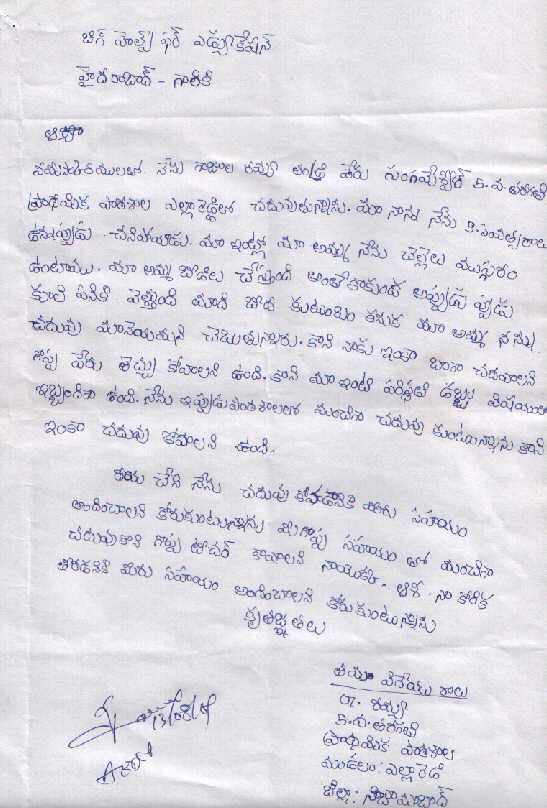 బిగ్ హెల్ప్ ఫర్ ఎడ్యుకేషన్
హైదరాబాద్ -
నమస్కారములతో నేను తండ్రి పేరు సంగమేశ్వర్ 5.వ.తరగతి
ప్రాథమిక పాఠశాల ఎల్లారెడ్డిలో చదువుతున్నాను. మా నాన్న నేను 3.సంవత్సరాల
ఉన్నప్పుడు చనిపోయాడు. మా ఇంట్లో మా అమ్మ నేను చెల్లెలు ముగ్గురం
ఉంటాము. మా అమ్మ బీడీలు చేస్తుంది అంతేకాకుండా అప్పుడు ప్పుడు
కూలి పనికి వెళ్తుంది మాది బీద కుటుంబం కనుక మా అమ్మ నన్ను
చదువు మానేయమని చెబుతున్నారు. కాని నాకు ఇంకా బాగా చదవాలని
గొప్ప పేరు తెచ్చు కోవాలని ఉంది. కాని మా ఇంటి పరిస్థితి డబ్బు విషయంలో
ఇబ్బందిగా ఉంది. నేను ఇప్పుడు మంచిగా చదువు కుంటున్నాను కాని
ఇంకా చదువు కోవాలని ఉంది.
దయ చేసి నేను చదువు కోవడానికి మీరు సహాయం
అందించాలని కోరుకుంటున్నాను మీ సహాయం తో మంచిగా
చదువుకొని గొప్ప టీచర్ కావాలని నాయొక్క ఆశ. నా కోరిక
తీరడానికి మీరు సహాయం అందించాలని కోరుకుంటున్నాను
కృతజ్ఞతలు
13/08/09
తమ విధేయు రాలు
5.వ.తరగతి
ప్రాథమిక పాఠశాల
మండలం: ఎల్లారెడ్డి
జిల్లా: నిజామాబాద్